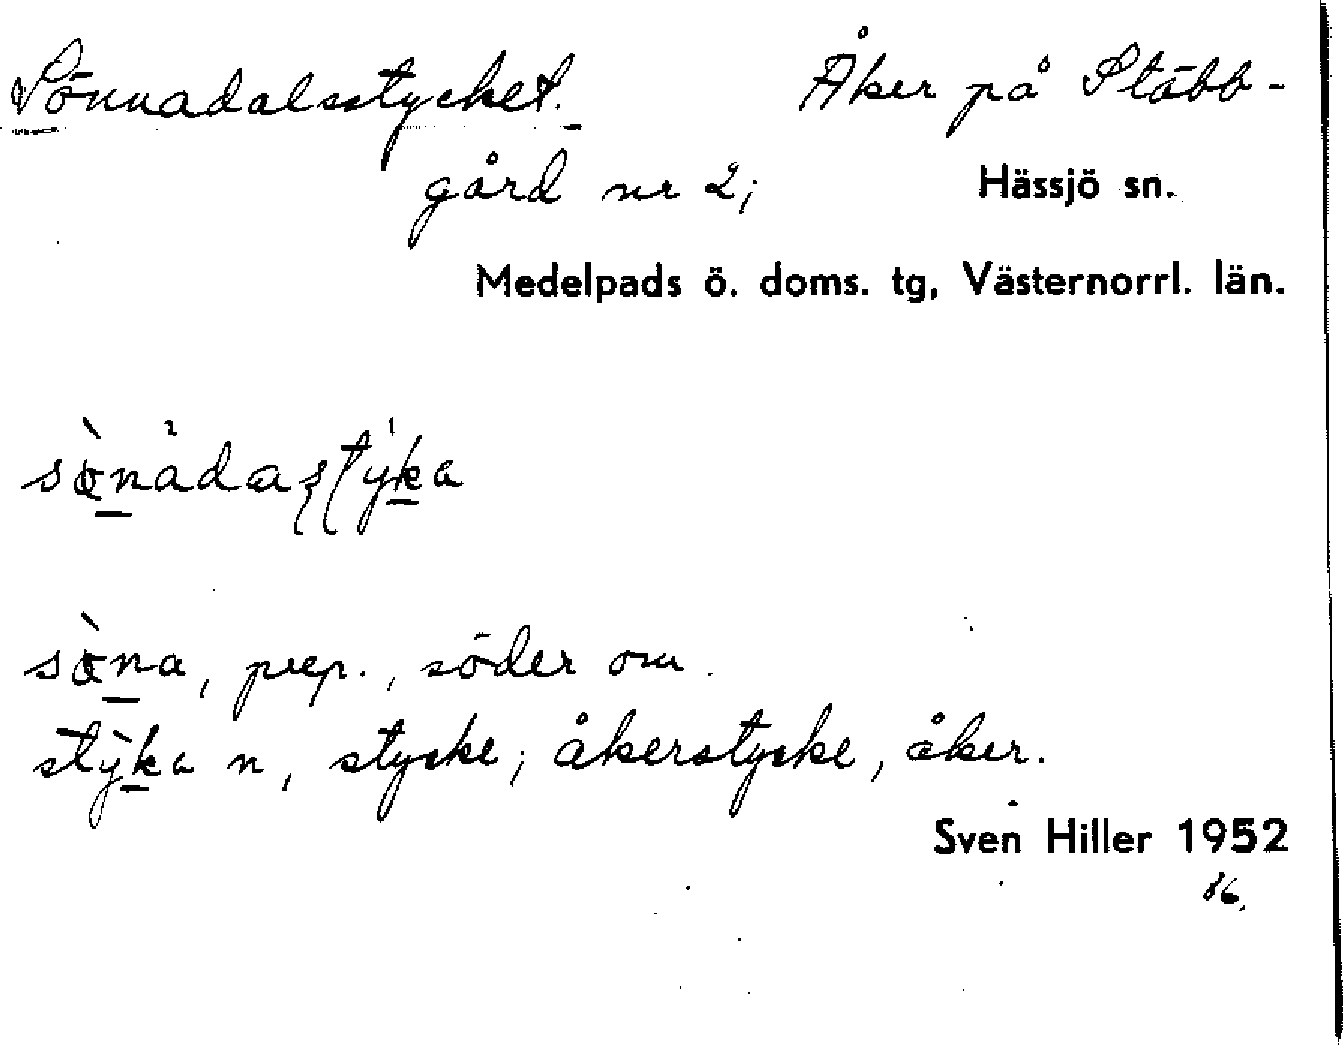 Sönnadalsstycket. Åker på Stäbb-
gård nr 2; Hässjö sn.
Medelpads ö. doms. tg, Västernorrl. län.
stycke; åkerstycke, åker.
prep., söder om.
Sven Hiller 1952
86.